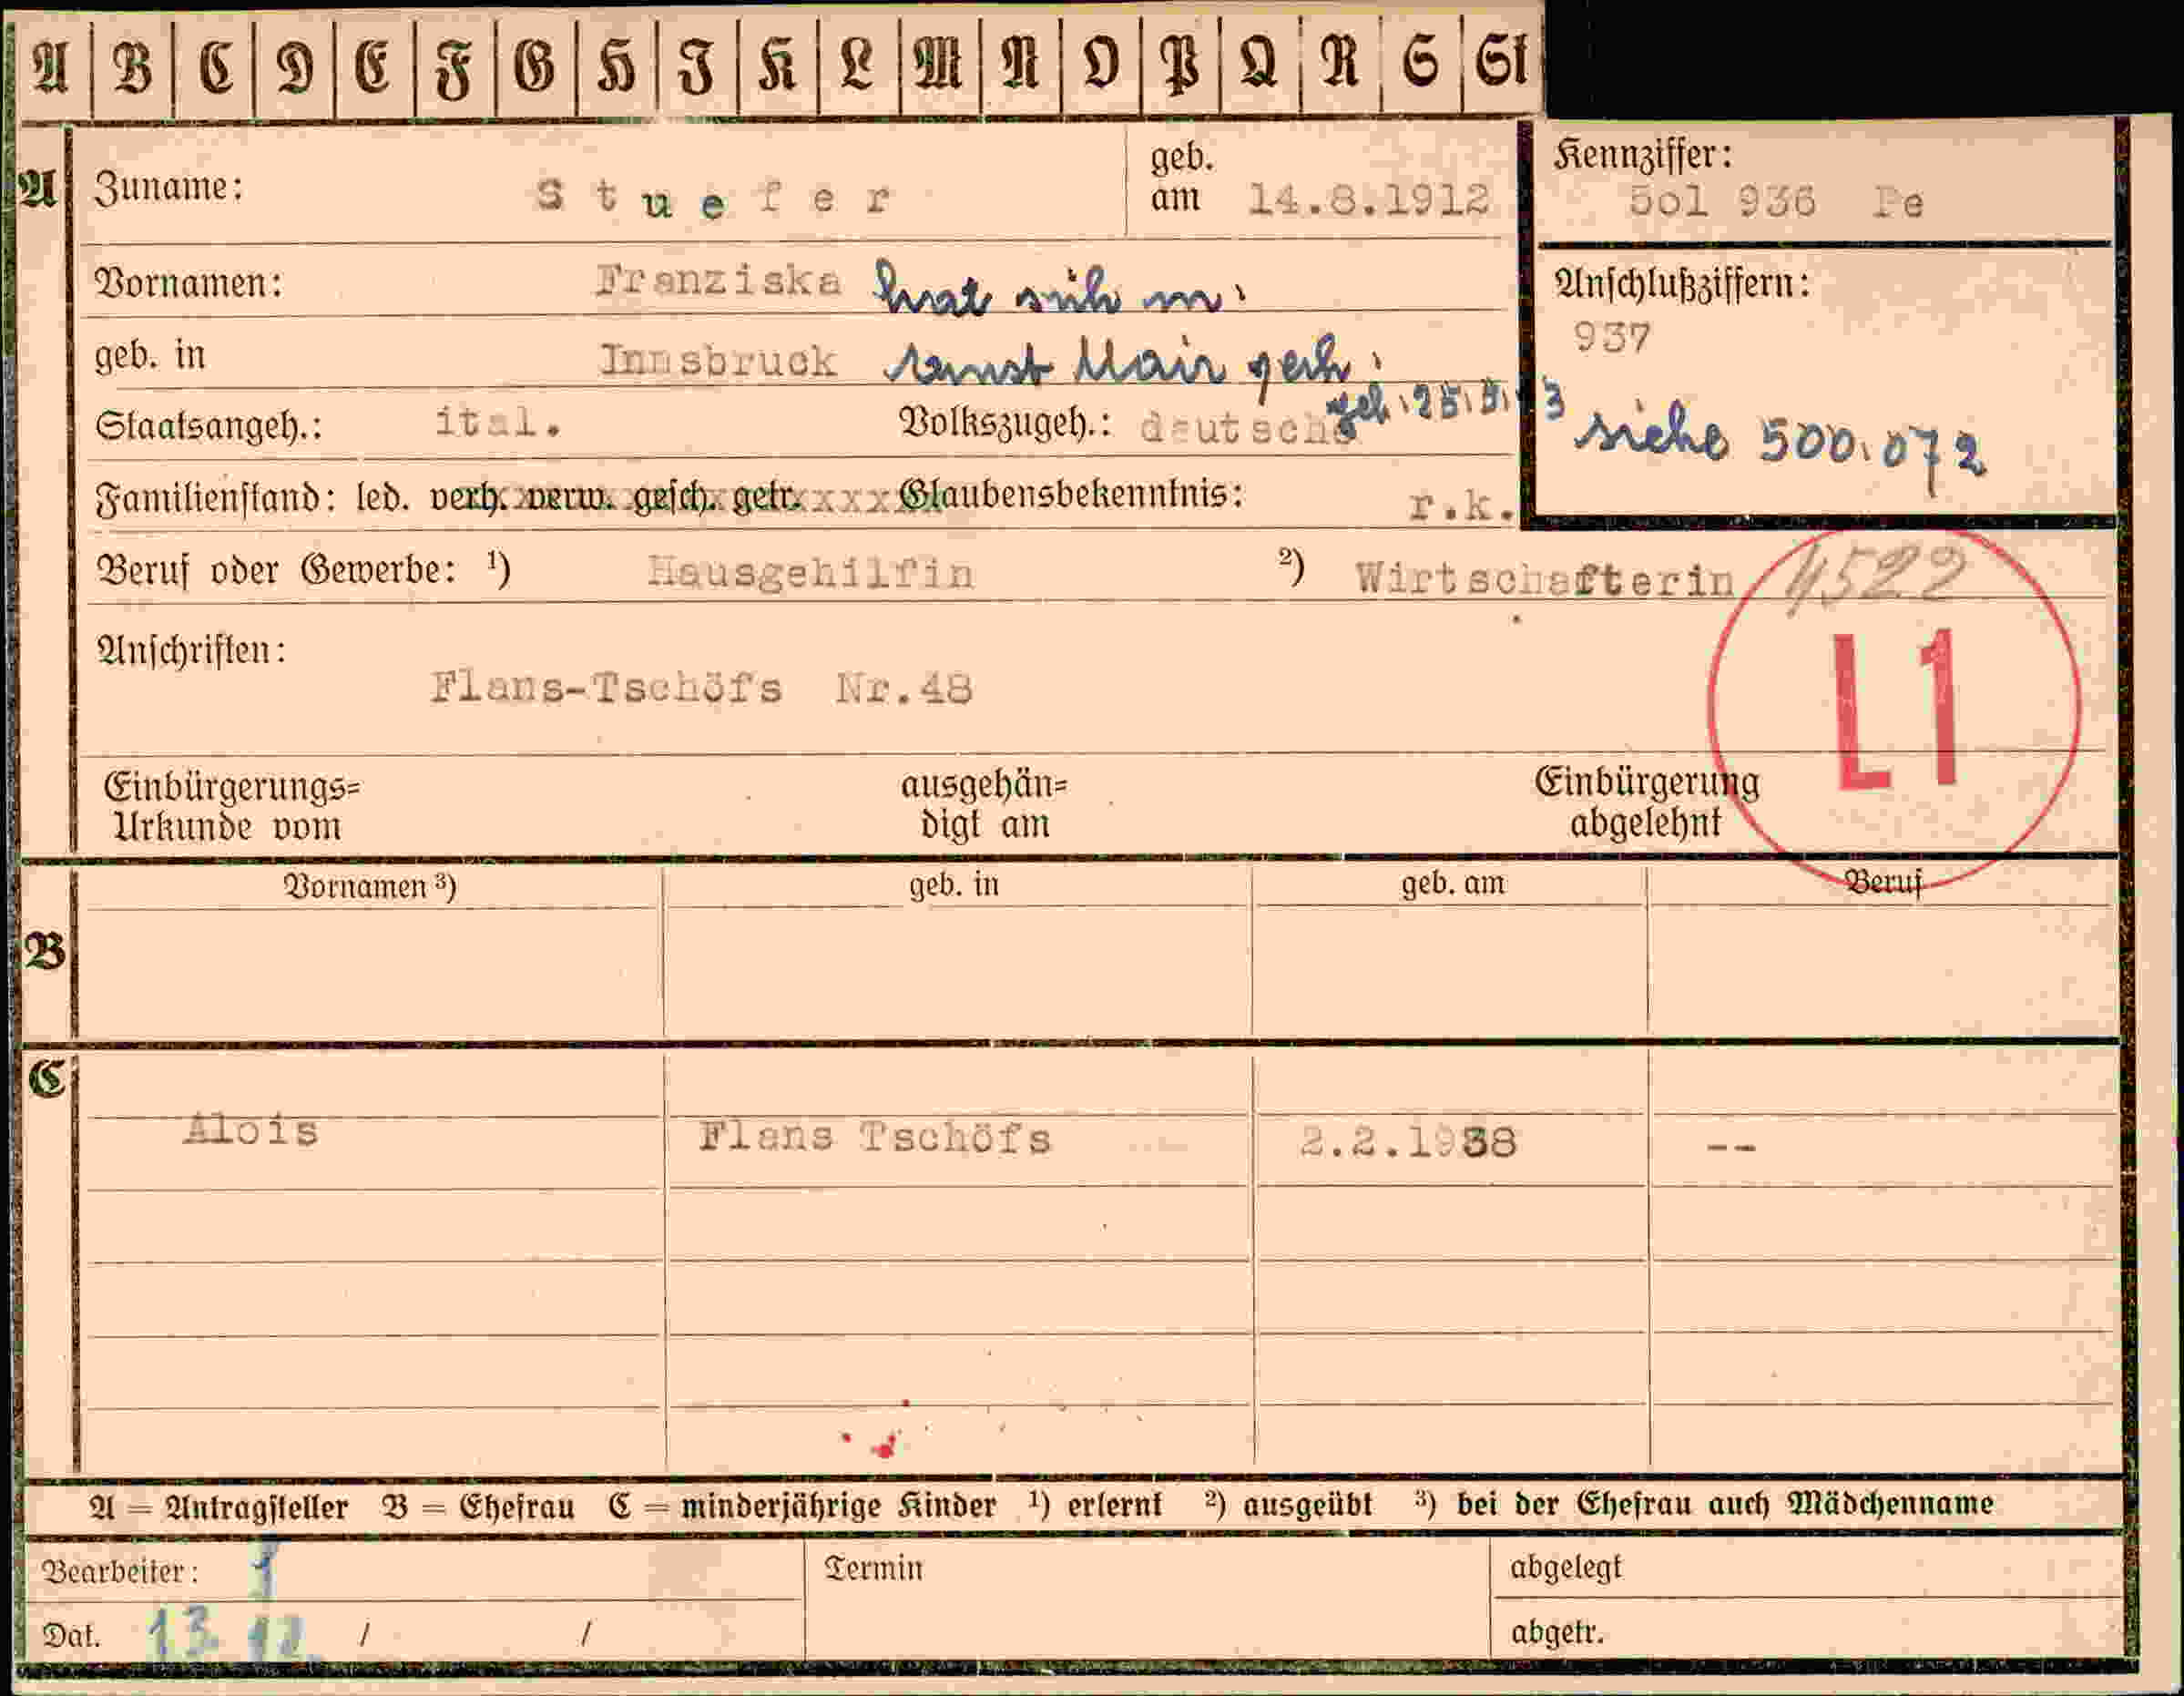 A B C D E F G H I K L M N O P Q R S St
A Zuname: Stuefer geb. am 14.8.1912
Kennziffer: 5o1 936 Pe
Vornamen: Franziska hat sich m.
Anschlußziffern:
937
geb. in Innsbruck Ernst Mair geh.
geb. 25.
siehe 500.072
Staatsangeh.: ital. Volkszugeh.: deutsche
Familienstand: led. verh. verw. gesch. getr. xxx Glaubensbekenntnis: r.k.
Beruf oder Gewerbe: ¹) Hausgehilfin ²) Wirtschafterin
4522
L1
Anschriften:
Flans-Tschöfs Nr.48
Einbürgerungs= Urkunde vom ausgehän= digt am Einbürgerung abgelehnt
Vornamen ³) geb. in geb. am Beruf
B
C
Alois Flans Tschöfs 2.2.1938 --
A = Antragsteller B = Ehefrau C = minderjährige Kinder ¹) erlernt ²) ausgeübt ³) bei der Ehefrau auch Mädchenname
Bearbeiter: Termin abgelegt
Dat. 13 12. / / abgetr.